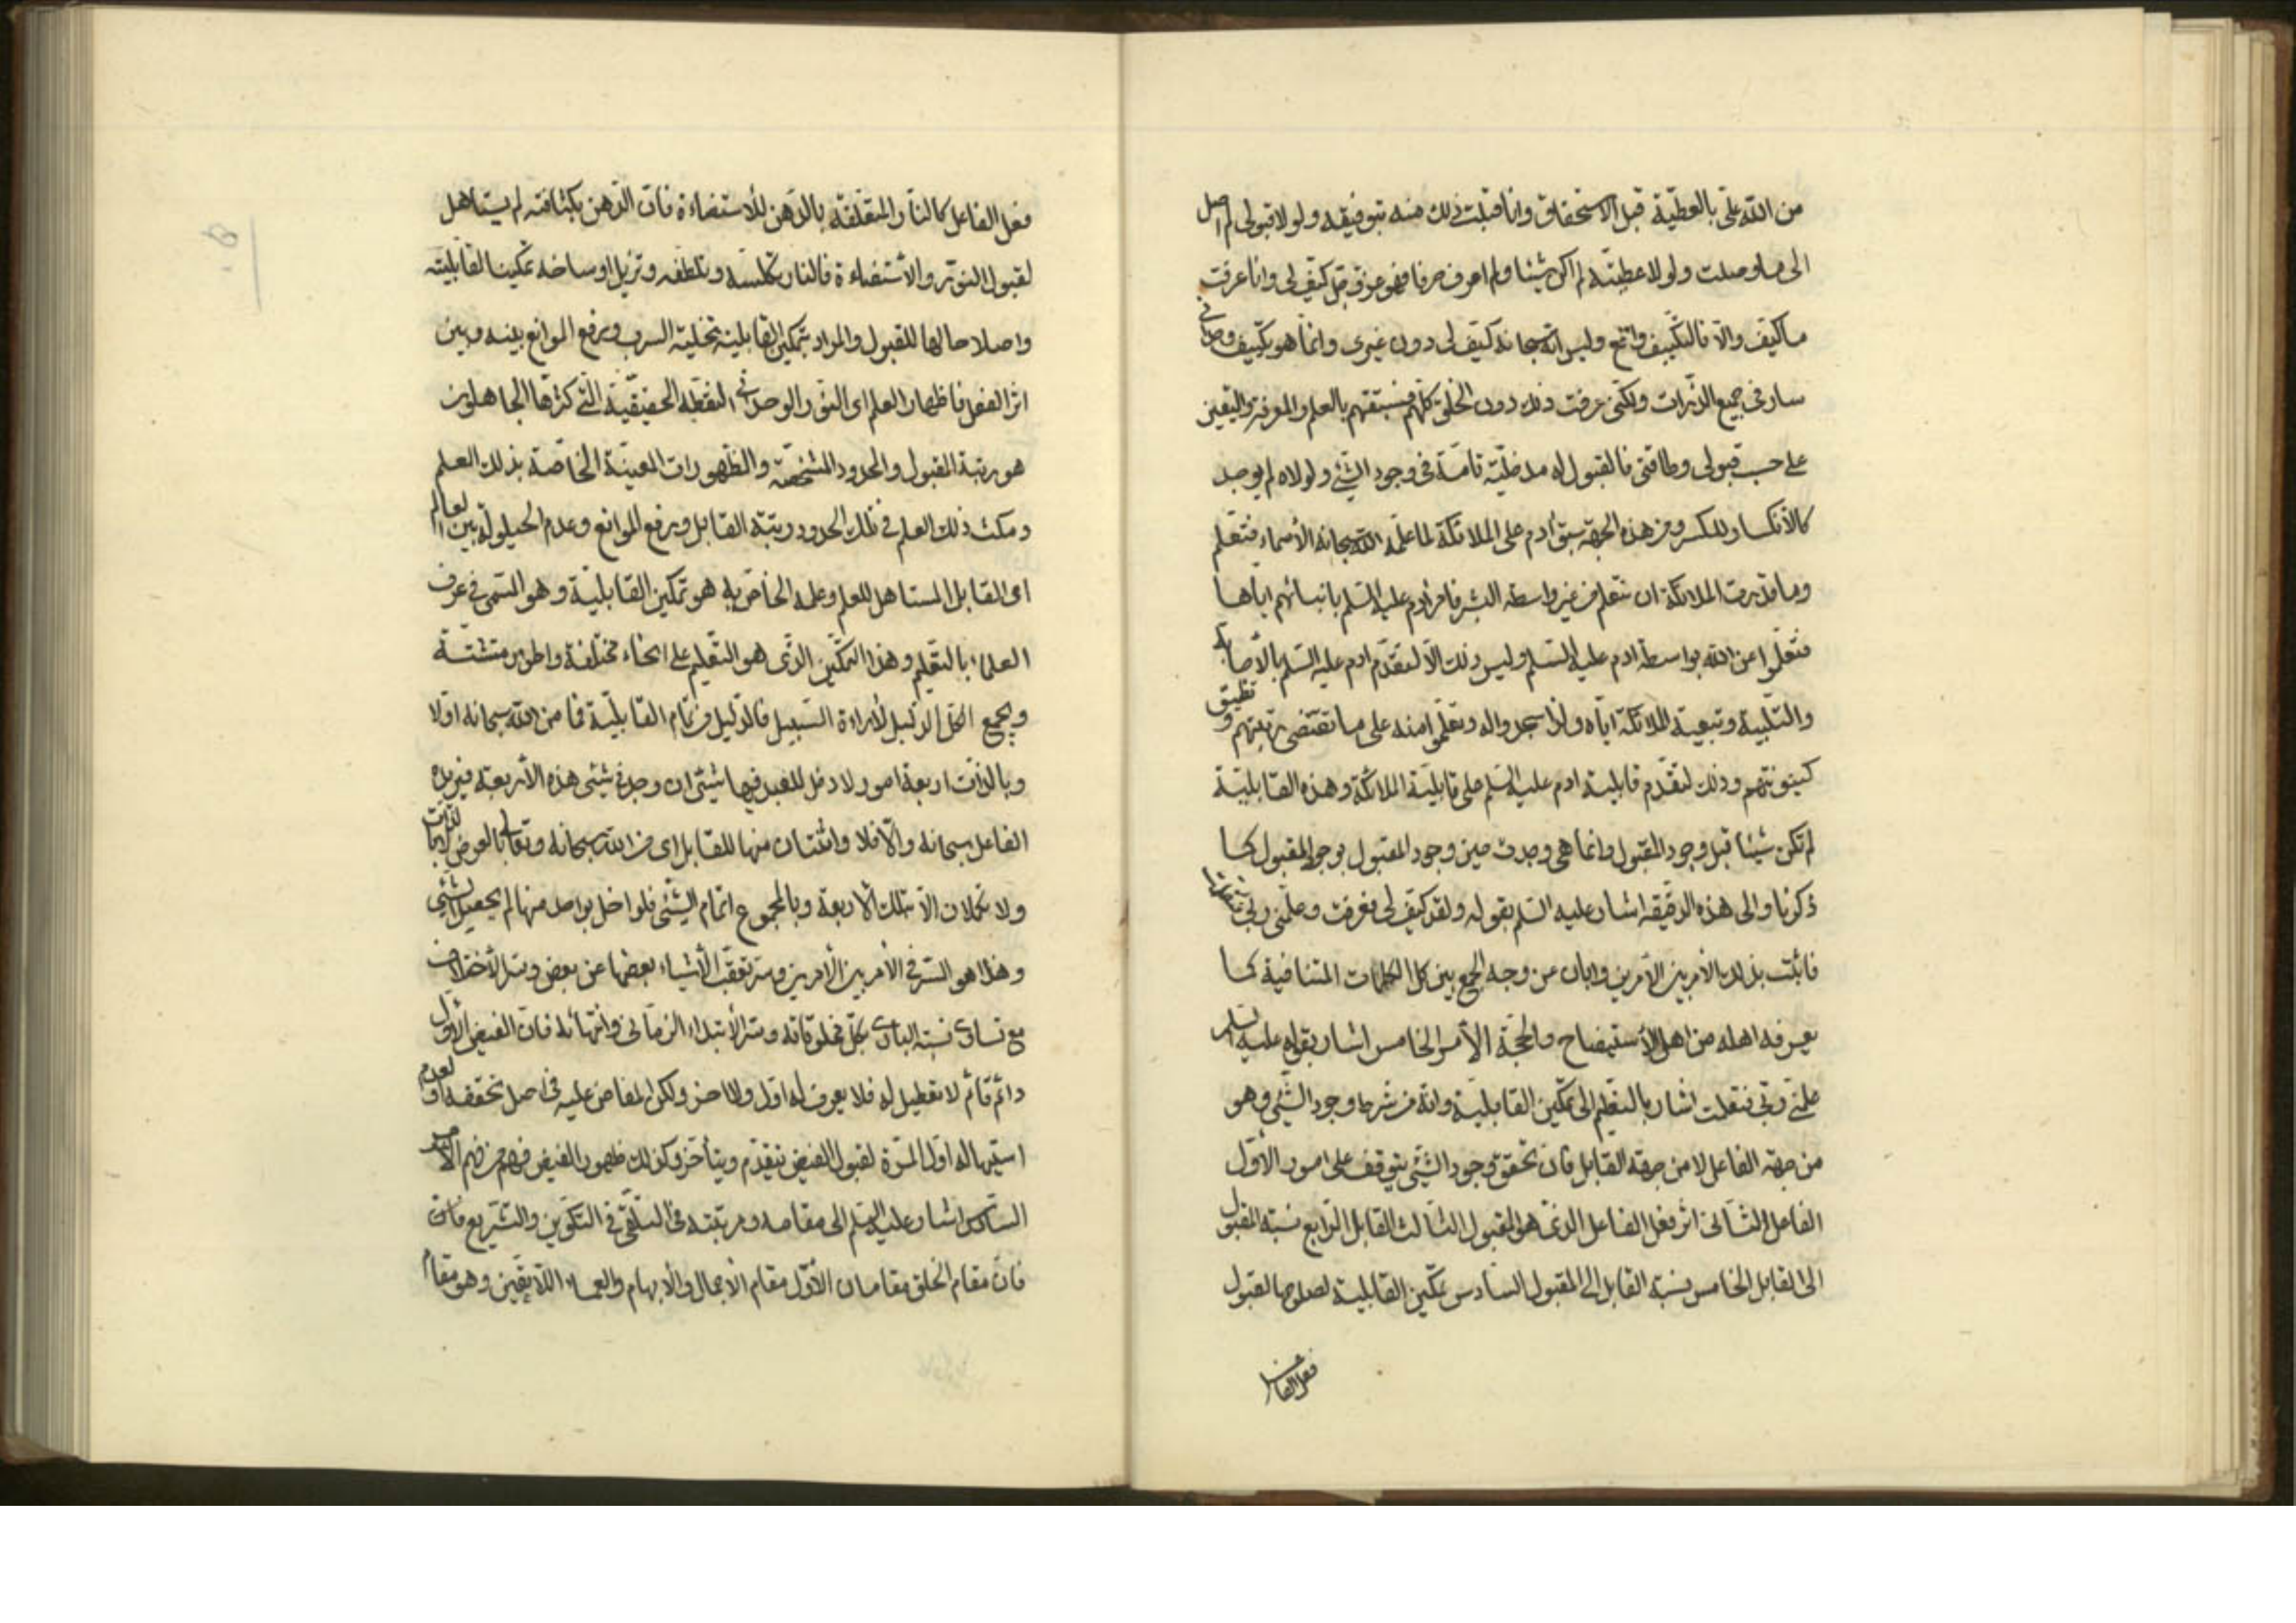 من الله علي بالعطية قبل الاستحقاق وانا قبلت ذلك منه بتوفيقه ولولا قبولي لم اصل
الى ما وصلت ولولا عطيته لم اكن شيئا ولم اعرف حرفا فهو عزوجل كيف لي وانا عرفت
ما كيف والا فالتكييف واقع وليس انه سبحانه كيف لي دون غيري وانما هو تكييف وحداني
سار في جميع الذرات ولكني عرفت ذلك دون الخلق كلهم فسبقتهم بالعلم والمعرفة واليقين
على حسب قبولي وطاقتي فالقبول له مدخلية تامة في وجود الشيء ولولاه لم يوجد
كالانكسار للكسر ومن هذه الجهة سبق ادم على الملائكة لما علمه الله سبحانه الأسماء فتعلم
وما قدرت الملائكة ان تتعلم من غير واسطة البشر فامر ادم عليه السلم بانبائهم اياها
فتعلموا عن الله بواسطة ادم عليه السلم وليس ذلك الا لتقدم ادم عليه السلم بالأجابة
والتلبية وتبعية الملائكة اياه ولذا سجدوا له وتعلموا منه على ما تقتضي رتبتهم و تطيق
كينونتهم وذلك لتقدم قابلية ادم عليه السلم على قابلية الملائكة وهذه القابلية
لم تكن شيئا قبل وجود المقبول وانما هي وجدت حين وجود المقبول بوجود المقبول كما
ذكرنا والى هذه الدقيقة اشار عليه السلم بقوله ولقد كيف لي فعرفت وعلمني ربي فتعلمت
فاثبت بذلك الأمر بين الأمرين وابان عن وجه الجمع بين كل الكلمات المتنافية كما
يعرفه اهله من اهل الأستيضاح والحجة الأمر الخامس اشار بقوله عليه السلم
علمني ربي فتعلمت اشار بالتعليم الى تمكين القابلية وانه من شرط وجود الشيء وهو
من جهة الفاعل لا من جهة القابل فان تحقق وجود الشيء يتوقف على امور الأول
الفاعل الثاني اثر فعل الفاعل الذي هو المقبول الثالث القابل الرابع نسبة المقبول
الى القابل الخامس نسبة القابل الى المقبول السادس تمكين القابلية لصلوحها لقبول
فعل الفاعل
فعل الفاعل كالنار المتعلقة بالدهن للأستضاءة فان الدهن بكثافته لم يستاهل
لقبول التنور والأستضاءة فالنار تكلسه وتلطفه وتزيل اوساخه تمكينا لقابليته
واصلاحا لها للقبول والمراد بتمكين القابلية تخلية السرب ورفع الموانع بينه وبين
اثر الفعل فاظهار العلم اى النور الوحداني النقطة الحقيقية التي كثرها الجاهلون
هو رتبة المقبول والحدود المشخصة والظهورات المعينة الخاصة بذلك العلم
و مكث ذلك العلم في تلك الحدود رتبة القابل ورفع الموانع وعدم الحيلولة بين العالم
اى القابل المستاهل للعلم وعلمه الخاص به هو تمكين القابلية و هو المسمى في عرف
العلماء بالتعليم وهذا التمكين الذي هو التعليم على انحاء مختلفة واطوار متشتتة
ويجمع الكل الدليل لأراءة السبيل فالدليل من تمام القابلية فما من الله سبحانه اولا
وبالذات اربعة امور لا دخل للعبد فيها بشيء ان وجد في شيء هذه الأربعة فيريده
الفاعل سبحانه والا فلا واثنتان منها للقابل اى من الله سبحانه وتعالى بالعرض لا بالذات
ولا تكملان الا بتلك الأربعة وبالمجموع اتمام الشيء فلو اخل بواحد منها لم يحصل الشيء
و هذا هو السر في الأمر بين الأمرين وسر تعقب الأشياء بعضها عن بعض وسر الأختلاف
مع تساوى نسبة البارى بكل مخلوقاته وسر الأبتداء الزماني وانتهائه فان الفيض الاول
دائم قائم لا تعطيل له فلا يعرف له اول ولا اخر ولكن المفاض عليه في اصل تحققه او لعدم
استيهاله اول المرة لقبول الفيض يتقدم ويتأخر وكذلك ظهور الفيض فافهم من فهم الأمر
السادس اشار عليه السلم الى مقامه و مرتبته في التلقي في التكوين والتشريع فان
فان مقام الخلق مقامان الأول مقام الأجمال والأبهام والعماء اللاتعين وهو مقام